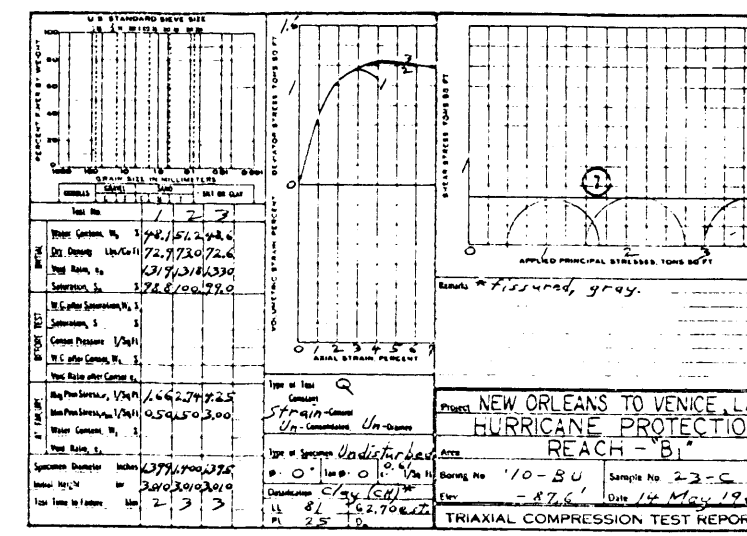 U S STANDARD SIEVE SIZE
PERCENT FINER BY WEIGHT
100
80
60
40
20
0
GRAIN SIZE IN MILLIMETERS
COBBLES GRAVEL SAND SILT OR CLAY
Test No. 1 2 3
INITIAL
Water Content, W₀ % 48.1 51.2 48.6
Dry Density Lbs/Cu ft 72.9 73.0 72.6
Void Ratio, e₀ 1.319 1.318 1.330
Saturation, S₀ % 98.8 100. 99.0
BEFORE TEST
W.C. after Saturation, W₀ %
Saturation, S %
Consol Pressure T/Sq Ft
W C after Consol, W₀ %
Void Ratio after Consol e₀
AT FAILURE
Maj Prin Stress, T/Sq Ft 1.66 2.74 4.25
Min Prin Stress, T/Sq Ft 0.50 1.50 3.00
Water Content, W₁ %
Void Ratio, e₁
Specimen Diameter Inches 1.399 1.400 1.395
Initial Height in 3.010 3.010 3.010
Test Time to Failure Min 2 3 3
DEVIATOR STRESS, TONS SQ FT
1.6
1
0
3
2
1
VOLUMETRIC STRAIN PERCENT
0 1 2 3 4 5 6 7
AXIAL STRAIN, PERCENT
Type of Test Q
Constant
Strain-Control
Un-Consolidated, Un-Drained
Type of Specimen Undisturbed
φ = 0° Tan φ = 0 0.61 T/Sq Ft
Classification Clay (CH)*
LL 81 G 2.70 est.
PL 25 D₀
SHEAR STRESS TONS SQ FT
1
0 1 2 3
APPLIED PRINCIPAL STRESSES, TONS SQ FT
Remarks *fissured, gray.
Project NEW ORLEANS TO VENICE, L
HURRICANE PROTECTIO
Area REACH - "B1"
Boring No 10-BU Sample No. 23-C
Elev - 87.6' Date 14 May 19
TRIAXIAL COMPRESSION TEST REPOR